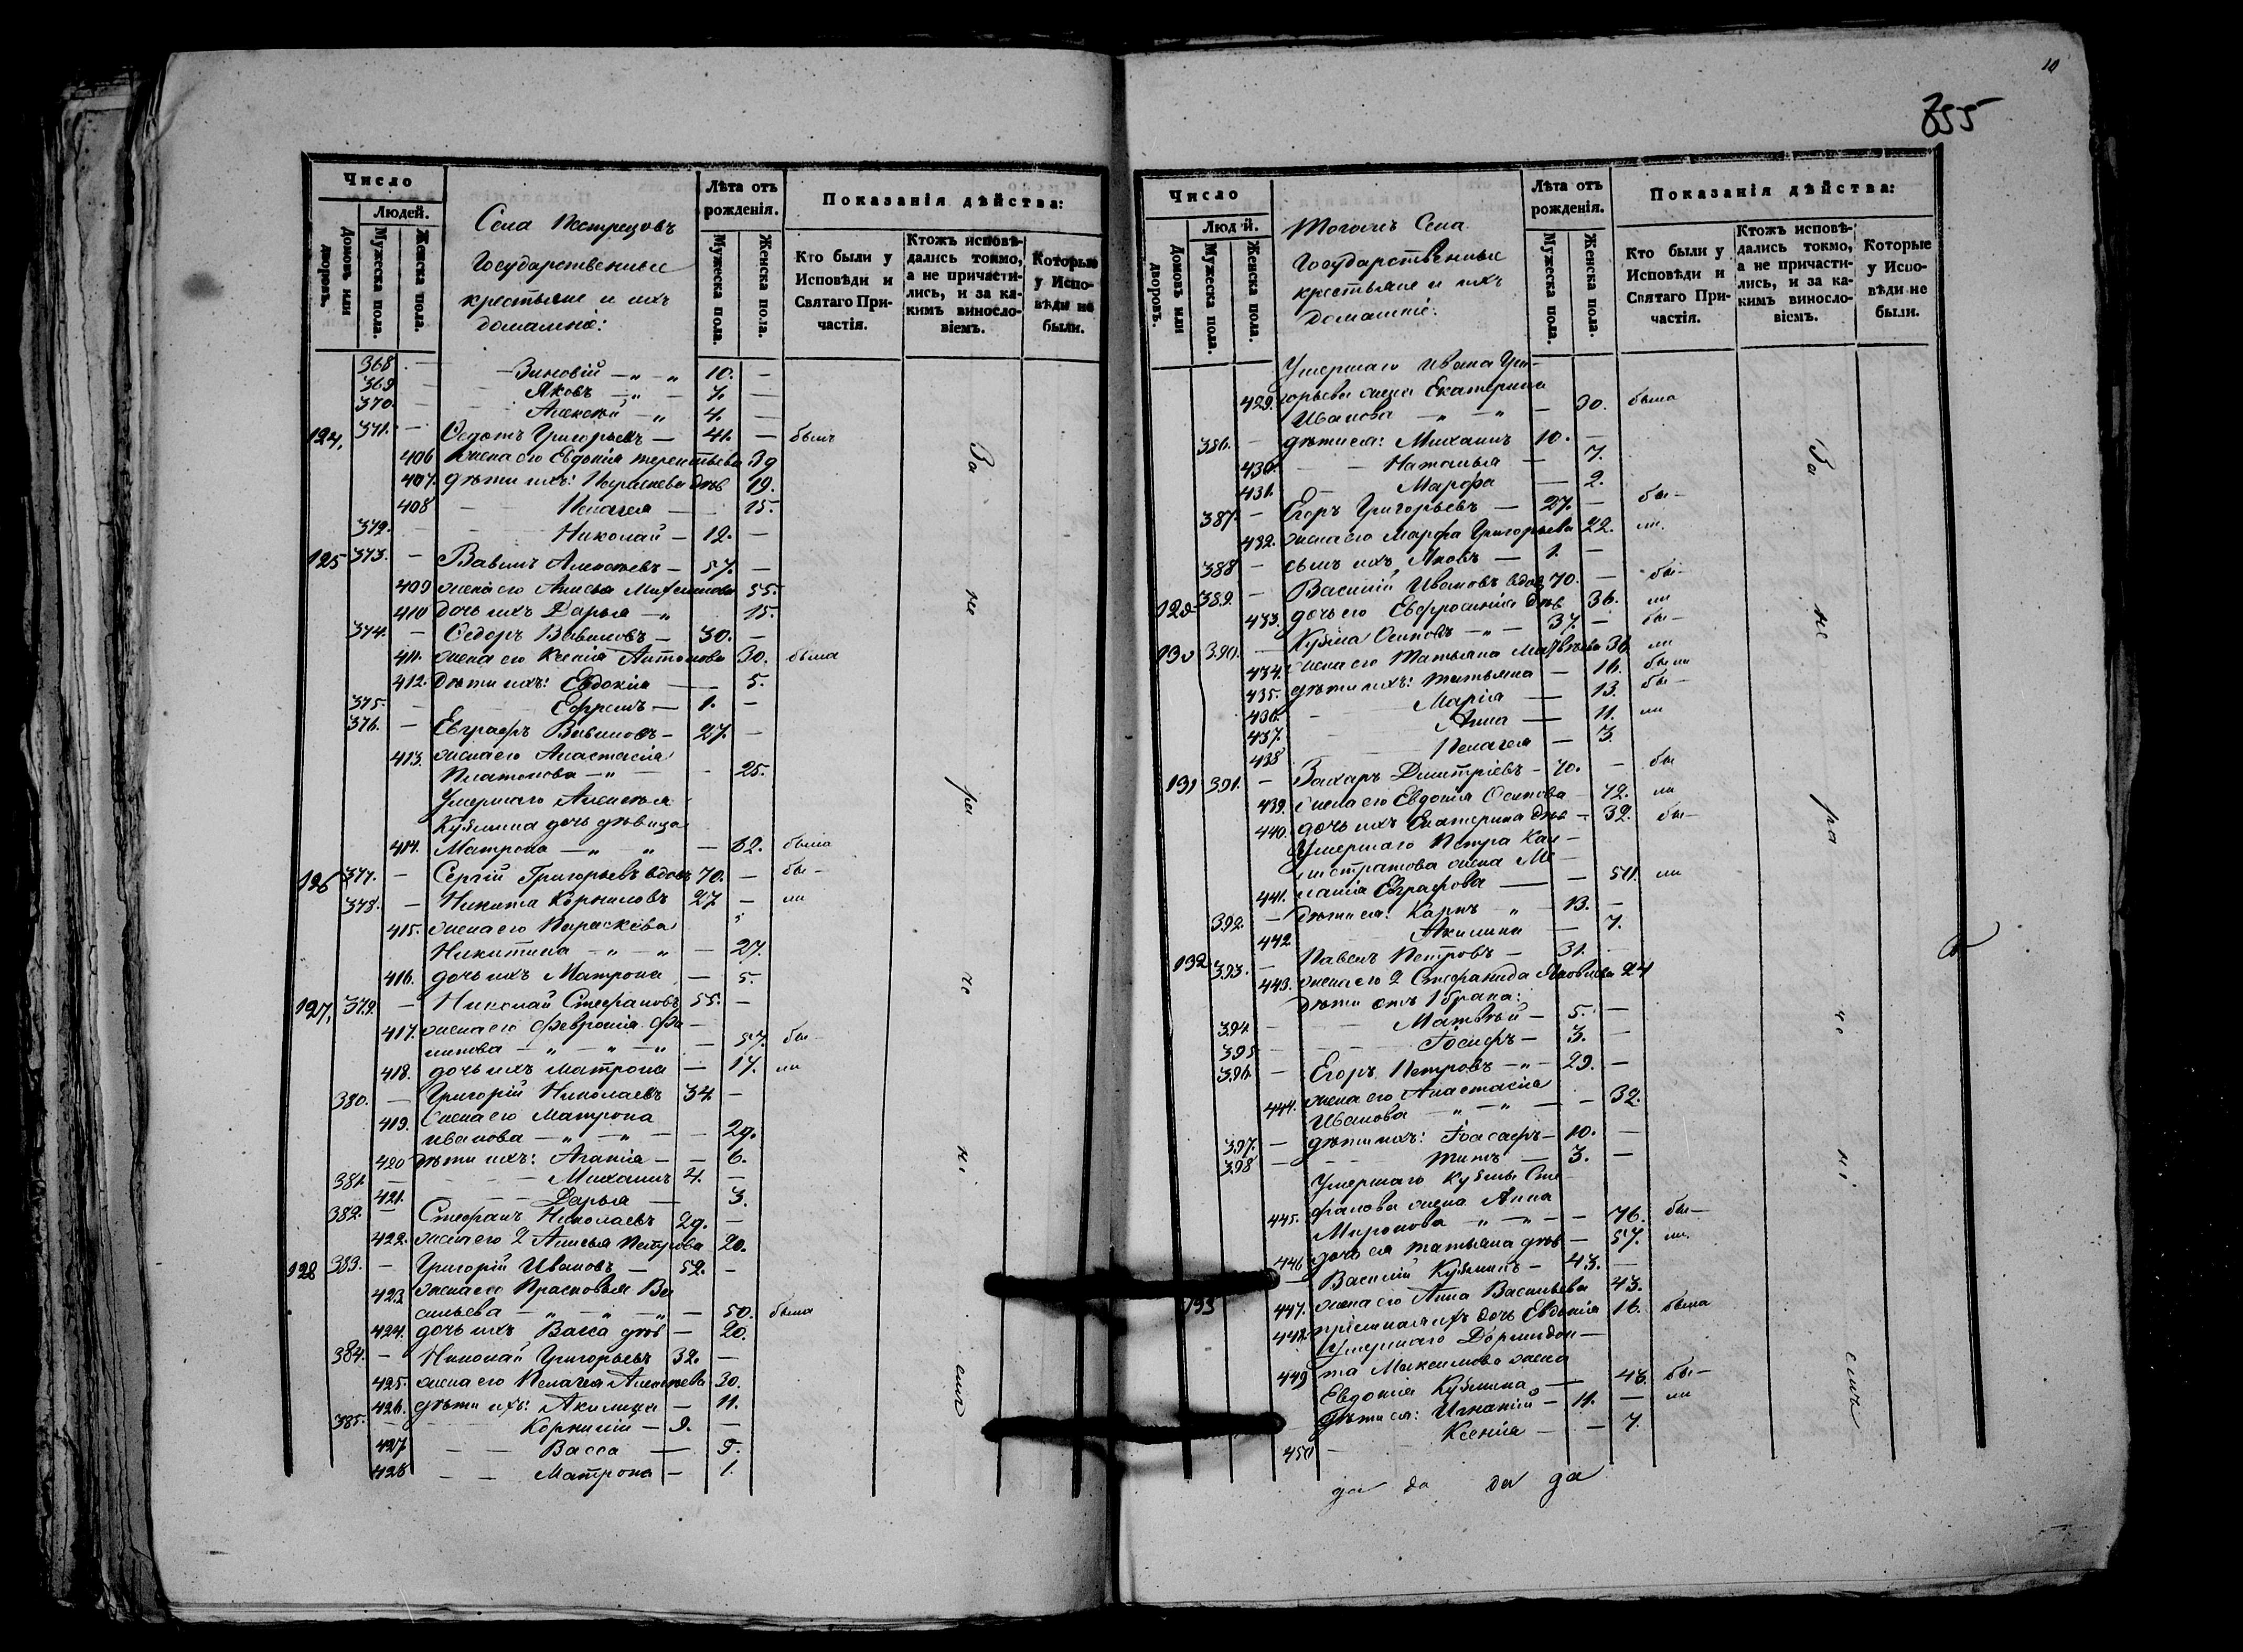 10
855
Число
Людей.
Домовъ или дворовъ.
Мужеска пола.
Женска пола.
Села Пестрецовъ
Государственные
крестьяне и ихъ
домашніе:
Лѣта отъ рожденія.
Мужеска пола.
Женска пола.
Показанія дѣйства:
Кто были у Исповѣди и Святаго Причастія.
Ктожъ исповѣдались токмо, а не причастились, и за какимъ винословіемъ.
Которые у Исповѣди не были.
368 — Зиновій — 10. —
369 — Яковъ — 7. —
370. — Алексѣй — 4. —
124, 371. — Ѳедотъ Григорьевъ — 41. — былъ
406 жена его Евдокія Терентьева 39
407. дѣти ихъ: Параскева дѣв 19.
408 — Пелагея — 15.
372. Николай — 12. —
125 373. — Вавилъ Алексѣевъ — 57. —
409 жена его Анисья 55.
410 дочь ихъ Дарья — 15.
374. — Ѳедоръ Вавиловъ — 30. —
411. жена его Ксенія Антонова 30. была
412. дѣти ихъ: Евдокія — 5.
375. — Ефремъ — 1. —
376. — Евграфъ Вавиловъ — 27. —
413. жена его Анастасія
Платонова — 25.
Умершаго Алексѣя
Кузмина дочь дѣвица
414. Матрона — 32. была
126 377. — Сергій Григорьевъ вдовъ 70. — бы—
378. — Никита Корниловъ 27 — ли
415. жена его Параскева
Никитина — 27.
416. дочь ихъ Матрона — 5.
127, 379. — Николай Стефановъ 55. —
417. жена его Февронія Фи—
липова — 57. бы—
418. дочь ихъ Матрона — 17. ли
380. — Григорій Николаевъ 34. —
419. жена его Матрона
Иванова — 29.
420 дѣти ихъ: Агапія — 6.
381. — Михаилъ 4. —
421. — Дарья — 3.
382. Стефанъ Николаевъ 29. —
422. жена его 2 Анисья Петрова 20.
128 383. — Григорій Ивановъ — 52. —
423 жена его Прасковья Ва
сильева — 50. была
424. дочь ихъ Васса дѣв — 20.
384. — Николай Григорьевъ 32. —
425. жена его Пелагея Алексѣева 30.
426. дѣти ихъ: Акилина — 11.
385. — Корнилій — 9. —
427 — Васса — 5.
428 — Матрона — 1.
Число
Людей.
Домовъ или дворовъ.
Мужеска пола.
Женска пола.
Тогожъ Села
Государственные
крестьяне и ихъ
домашніе:
Лѣта отъ рожденія.
Мужеска пола.
Женска пола.
Показанія дѣйства:
Кто были у Исповѣди и Святаго Причастія.
Ктожъ исповѣдались токмо, а не причастились, и за какимъ винословіемъ.
Которые у Исповѣди не были.
Умершаго Ивана Гри—
429. горьева жена Екатерина
Иванова — 30. была
386. — дѣти ея: Михаилъ 10. —
430. — Наталья — 7.
431. — Марфа — 2.
387. — Егоръ Григорьевъ — 27. — бы—
432. жена его Марфа Григорьева 22. ли.
388 — сынъ ихъ Яковъ — 1. —
129 389. — Василій Ивановъ вдов 70. — бы—
433. дочь его Евфросинія дѣв 36. ли
130 390. — Кузма Осиповъ — 37. — бы—
434. жена его Татьяна Матвѣева 36 ли
435. дѣти ихъ: Татьяна — 16. были
436. — Марія — 13. бы—
437. — Анна — 11. ли
438 — Пелагея — 3.
131 391. — Захаръ Дмитріевъ — 70. — бы
439. жена его Евдокія Осипова — 72. ли
440. дочь ихъ Екатерина дѣв — 32. бы—
Умершаго Петра Кал—
листратова жена Ме—
441. ланія Евграфова — 50. ли
392. — дѣти ея: Карпъ — 13. —
442 — Акилина — 7.
132 393. — Павелъ Петровъ — 31. —
443. жена его 2 Стефанида Яковлева 24
дѣти отъ 1 брака:
394. — Матвѣй — 5. —
395 — Іосифъ — 3. —
396. — Егоръ Петровъ — 29. —
444. жена его Анастасія
Иванова — 32.
397. — дѣти ихъ: Іоасафъ — 10. —
398 — Титъ — 3. —
Умершаго Кузмы Сте
445. фанова жена Анна
Миронова — 76. бы—
446 дочь ея Татьяна дѣв — 57. ли.
Василій Кузминъ — 43. —
133 447. жена его Анна Васильева 43.
448 дочь Евдокія 16. была
Умершаго Дормидон—
449 та Максимова жена
Евдокія Кузмина — 43. бы—
дѣти ея: Игнатій — 11. — ли
450 — Ксенія — 7.
да да да да